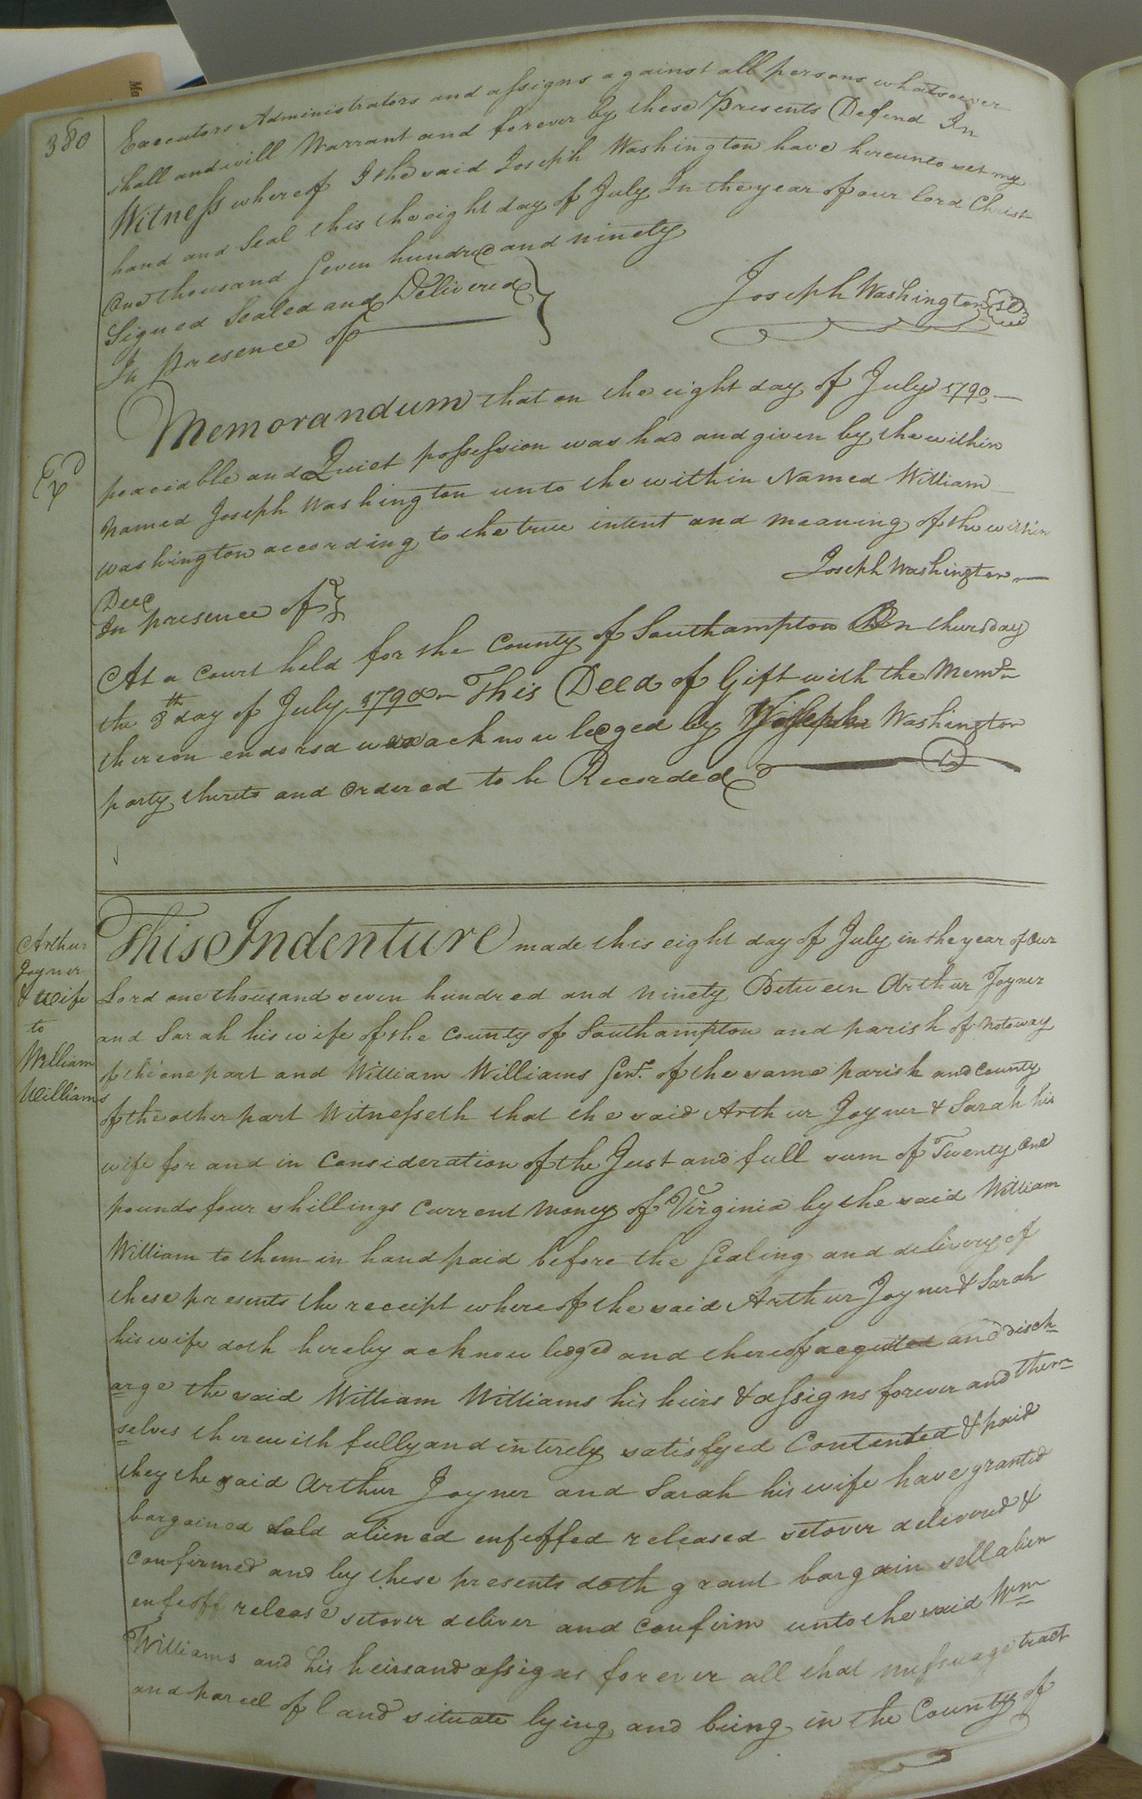 380
Executors Administrators and assigns against all persons whatsoever
shall and will Warrant and forever by these Presents Defend In
Witness whereof I the said Joseph Washington have hereunto set my
hand and Seal this the eight day of July In the year of our Lord Christ
One thousand Seven hundred and ninety
Signed Sealed and Delivered
In presence of
Joseph Washington
Memorandum that on the eight day of July 1790
peaciable and Quiet possession was had and given by the within
Named Joseph Washington unto the within Named William
Washington according to the true intent and meaning of the within
Deed
Joseph Washington
In presence of
At a Court held for the County of Southampton On thursday
the 8th day of July 1790 This Deed of Gift with the Memdm
thereon endorsd was acknowledged by Joseph Washington
party thereto and Ordered to be Recorded
Arthur
Joyner
& Wife
to
William
Williams
This Indenture made this eight day of July in the year of Our
Lord one thousand seven hundred and ninety Between Arthur Joyner
and Sarah his wife of the County of Southampton and parish of Notoway
of the one part and William Williams Gent. of the same parish and County
of the other part Witnesseth that the said Arthur Joyner & Sarah his
wife for and in Consideration of the Just and full sum of Twenty One
pounds four shillings Current Money of Virginia by the said William
William to them in hand paid before the Sealing and delivery of
these presents the receipt whereof the said Arthur Joyner & Sarah
his wife doth hereby acknowledged and thereof acquited and disch
arge the said William Williams his heirs & assigns forever and them
selves therewith fully and intirely satisfyed Contented & paid
they the said Arthur Joyner and Sarah his wife have granted
bargained Sold aliened enfeoffed released setover delivered &
Confirmed and by these presents doth grant bargain sell alien
enfeoff release setover deliver and Confirm unto the said Wm
Williams and his heirs and assigns forever all that messuage tract
and parcel of land situate lying and being in the County of